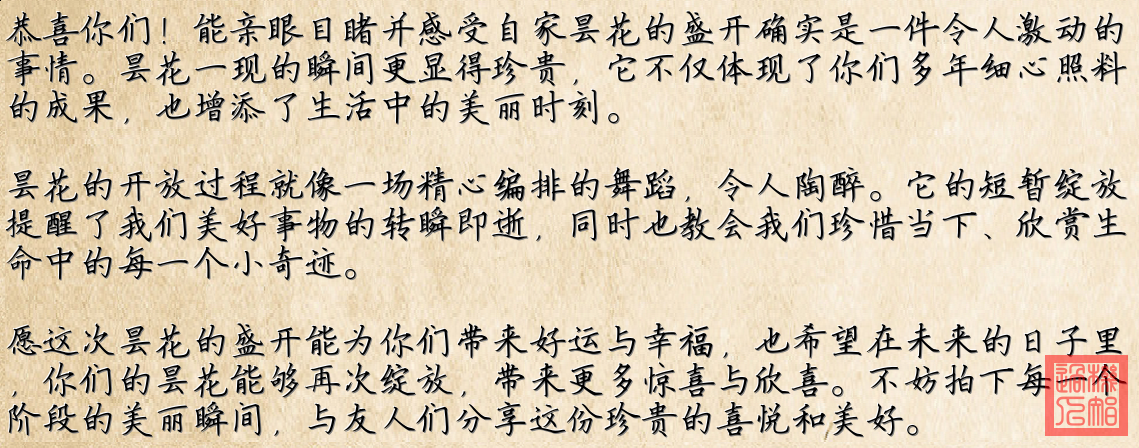 恭喜你们！能亲眼目睹并感受自家昙花的盛开确实是一件令人激动的
事情。昙花一现的瞬间更显得珍贵，它不仅体现了你们多年细心照料
的成果，也增添了生活中的美丽时刻。
昙花的开放过程就像一场精心编排的舞蹈，令人陶醉。它的短暂绽放
提醒了我们美好事物的转瞬即逝，同时也教会我们珍惜当下、欣赏生
命中的每一个小奇迹。
愿这次昙花的盛开能为你们带来好运与幸福，也希望在未来的日子里
，你们的昙花能够再次绽放，带来更多惊喜与欣喜。不妨拍下每一个
阶段的美丽瞬间，与友人们分享这份珍贵的喜悦和美好。